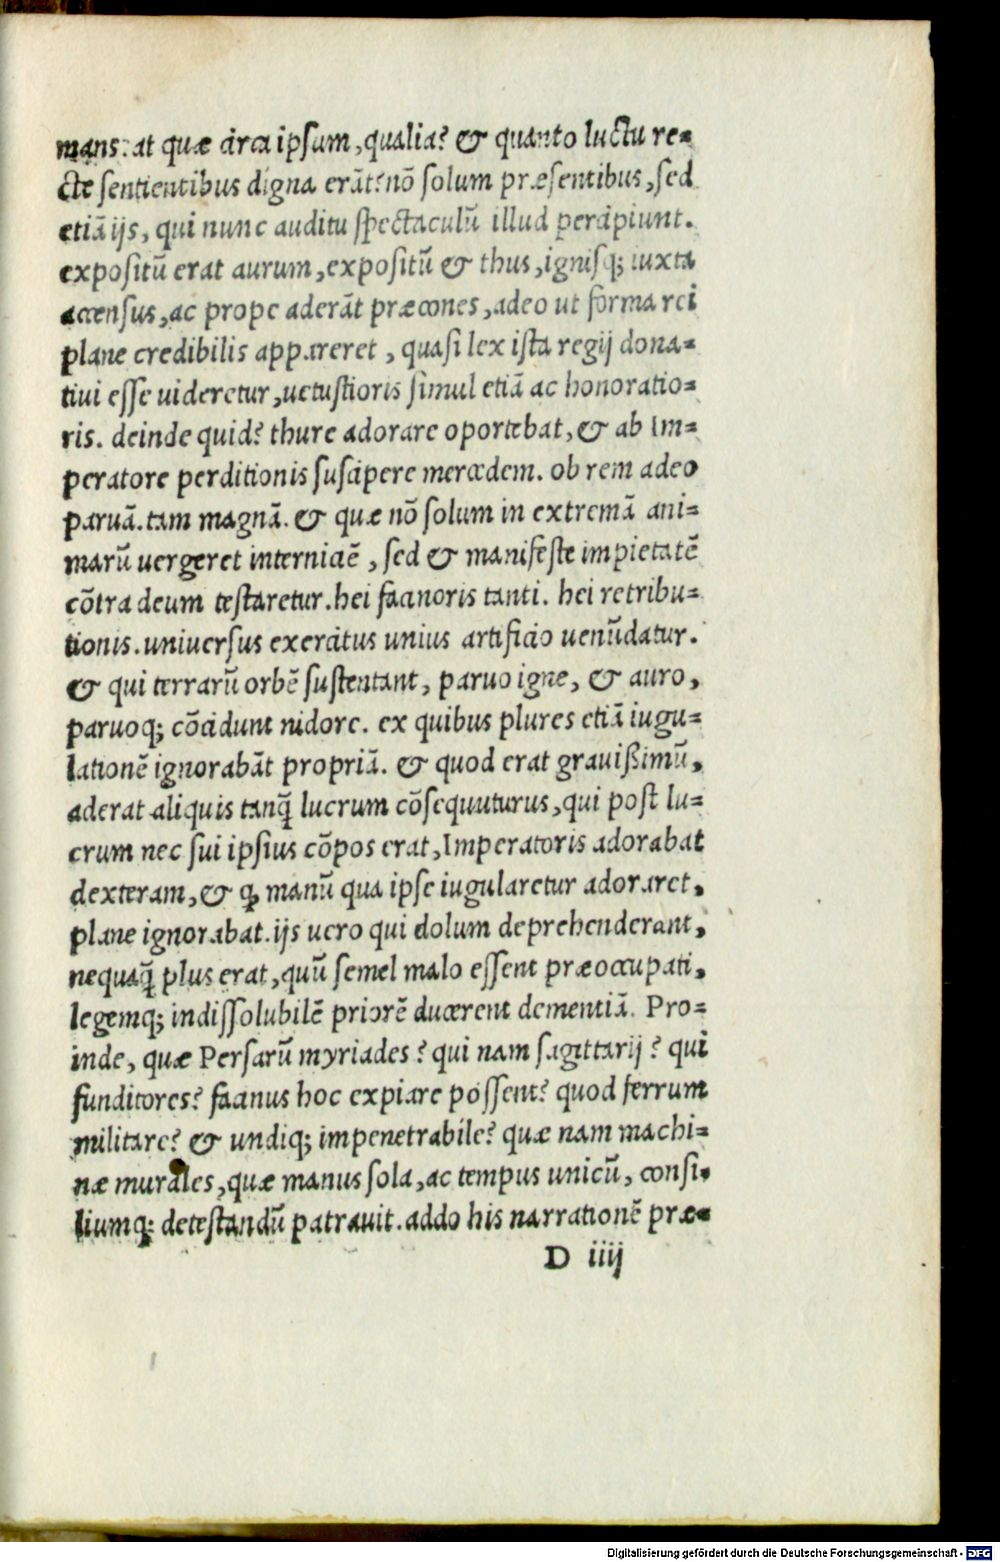 mans: at quæ circa ipsum, qualia? & quanto luctu re=
cte sentientibus digna erāt? nō solum præsentibus, sed
etiā ijs, qui nunc auditu spectaculū illud percipiunt.
expositū erat aurum, expositū & thus, ignisq; iuxta
accensus, ac prope aderāt præcones, adeo ut forma rei
plane credibilis appareret, quasi lex ista regij dona=
tiui esse uideretur, uetustioris simul etiā ac honoratio=
ris. deinde quid? thure adorare oportebat, & ab Im=
peratore perditionis suscipere mercedem. ob rem adeo
paruā. tam magnā. & quæ nō solum in extremā ani=
marū uergeret interniciē, sed & manifeste impietatē
cōtra deum testaretur. hei facinoris tanti. hei retribu=
tionis. uniuersus exercitus unius artificio uenūdatur.
& qui terrarū orbē sustentant, paruo igne, & auro,
paruoq; cōcidunt nidore. ex quibus plures etiā iugu=
lationē ignorabāt propriā. & quod erat grauißimū,
aderat aliquis tanq̄ lucrum cōsequuturus, qui post lu=
crum nec sui ipsius cōpos erat, Imperatoris adorabat
dexteram, & ꝙ manū qua ipse iugularetur adoraret,
plane ignorabat. ijs uero qui dolum deprehenderant,
nequaq̄ plus erat, quū semel malo essent præoccupati,
legemq; indissolubilē priorē ducerent dementiā. Pro=
inde, quæ Persarū myriades? qui nam sagittarij? qui
funditores? facinus hoc expiare possent? quod ferrum
militare? & undiq; impenetrabile? quæ nam machi=
næ murales, quæ manus sola, ac tempus unicū, consi=
liumq; detestandū patrauit. addo his narrationē præ=
D iiij
Digitalisierung gefördert durch die Deutsche Forschungsgemeinschaft - DFG